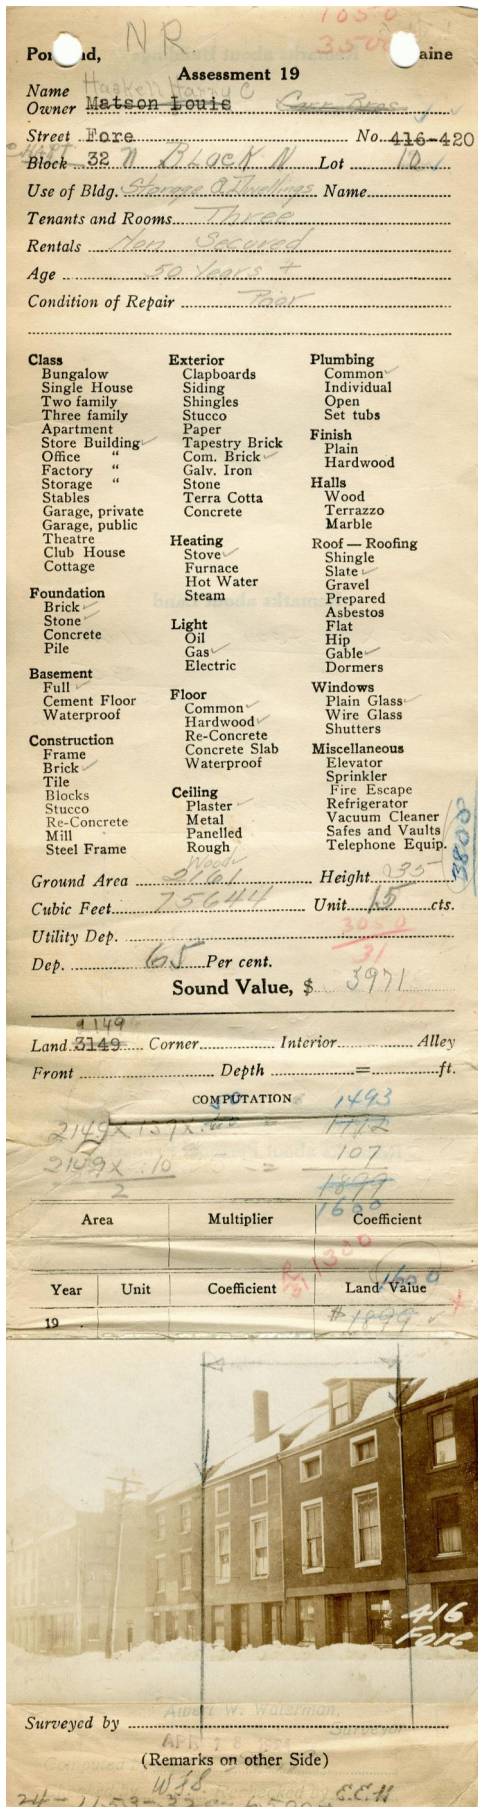 1050
N.R.
3500
Portland, Maine
Assessment 19
Haskell Harry C
Name
Owner Matson Louis Carr Bros
Street Fore No. 416-420
Block 32 N Block N Lot 10
Use of Bldg. Storage & Dwellings Name
Tenants and Rooms Three
Rentals Non Secured
Age 50 Years +
Condition of Repair Poor
Class
Bungalow
Single House
Two family
Three family
Apartment
Store Building ✓
Office "
Factory "
Storage "
Stables
Garage, private
Garage, public
Theatre
Club House
Cottage
Foundation
Brick ✓
Stone ✓
Concrete
Pile
Basement
Full ✓
Cement Floor
Waterproof
Construction
Frame
Brick ✓
Tile
Blocks
Stucco
Re-Concrete
Mill
Steel Frame
Exterior
Clapboards
Siding
Shingles
Stucco
Paper
Tapestry Brick
Com. Brick ✓
Galv. Iron
Stone
Terra Cotta
Concrete
Heating
Stove ✓
Furnace
Hot Water
Steam
Light
Oil
Gas ✓
Electric
Floor
Common ✓
Hardwood ✓
Re-Concrete
Concrete Slab
Waterproof
Ceiling
Plaster ✓
Metal
Panelled
Rough
Wood ✓
Plumbing
Common ✓
Individual
Open
Set tubs
Finish
Plain
Hardwood
Halls
Wood
Terrazzo
Marble
Roof — Roofing
Shingle
Slate ✓
Gravel
Prepared
Asbestos
Flat
Hip
Gable ✓
Dormers
Windows
Plain Glass ✓
Wire Glass
Shutters
Miscellaneous
Elevator
Sprinkler
Fire Escape
Refrigerator
Vacuum Cleaner
Safes and Vaults
Telephone Equip.
3800
Ground Area 2161 Height 35
Cubic Feet 75644 Unit 15 cts.
Utility Dep.
3050
31
Dep. 65 Per cent.
Sound Value, $ 3971
2149
Land 3149 Corner Interior Alley
Front Depth = ft.
COMPUTATION
1493
2149 x 139 x .60 = 1792
2149 x .10 = 107
2 1899
1600
Area Multiplier Coefficient
1300
Year Unit Coefficient Land Value
1600
19 $1899
416
Fore
Surveyed by
APR 18
(Remarks on other Side)